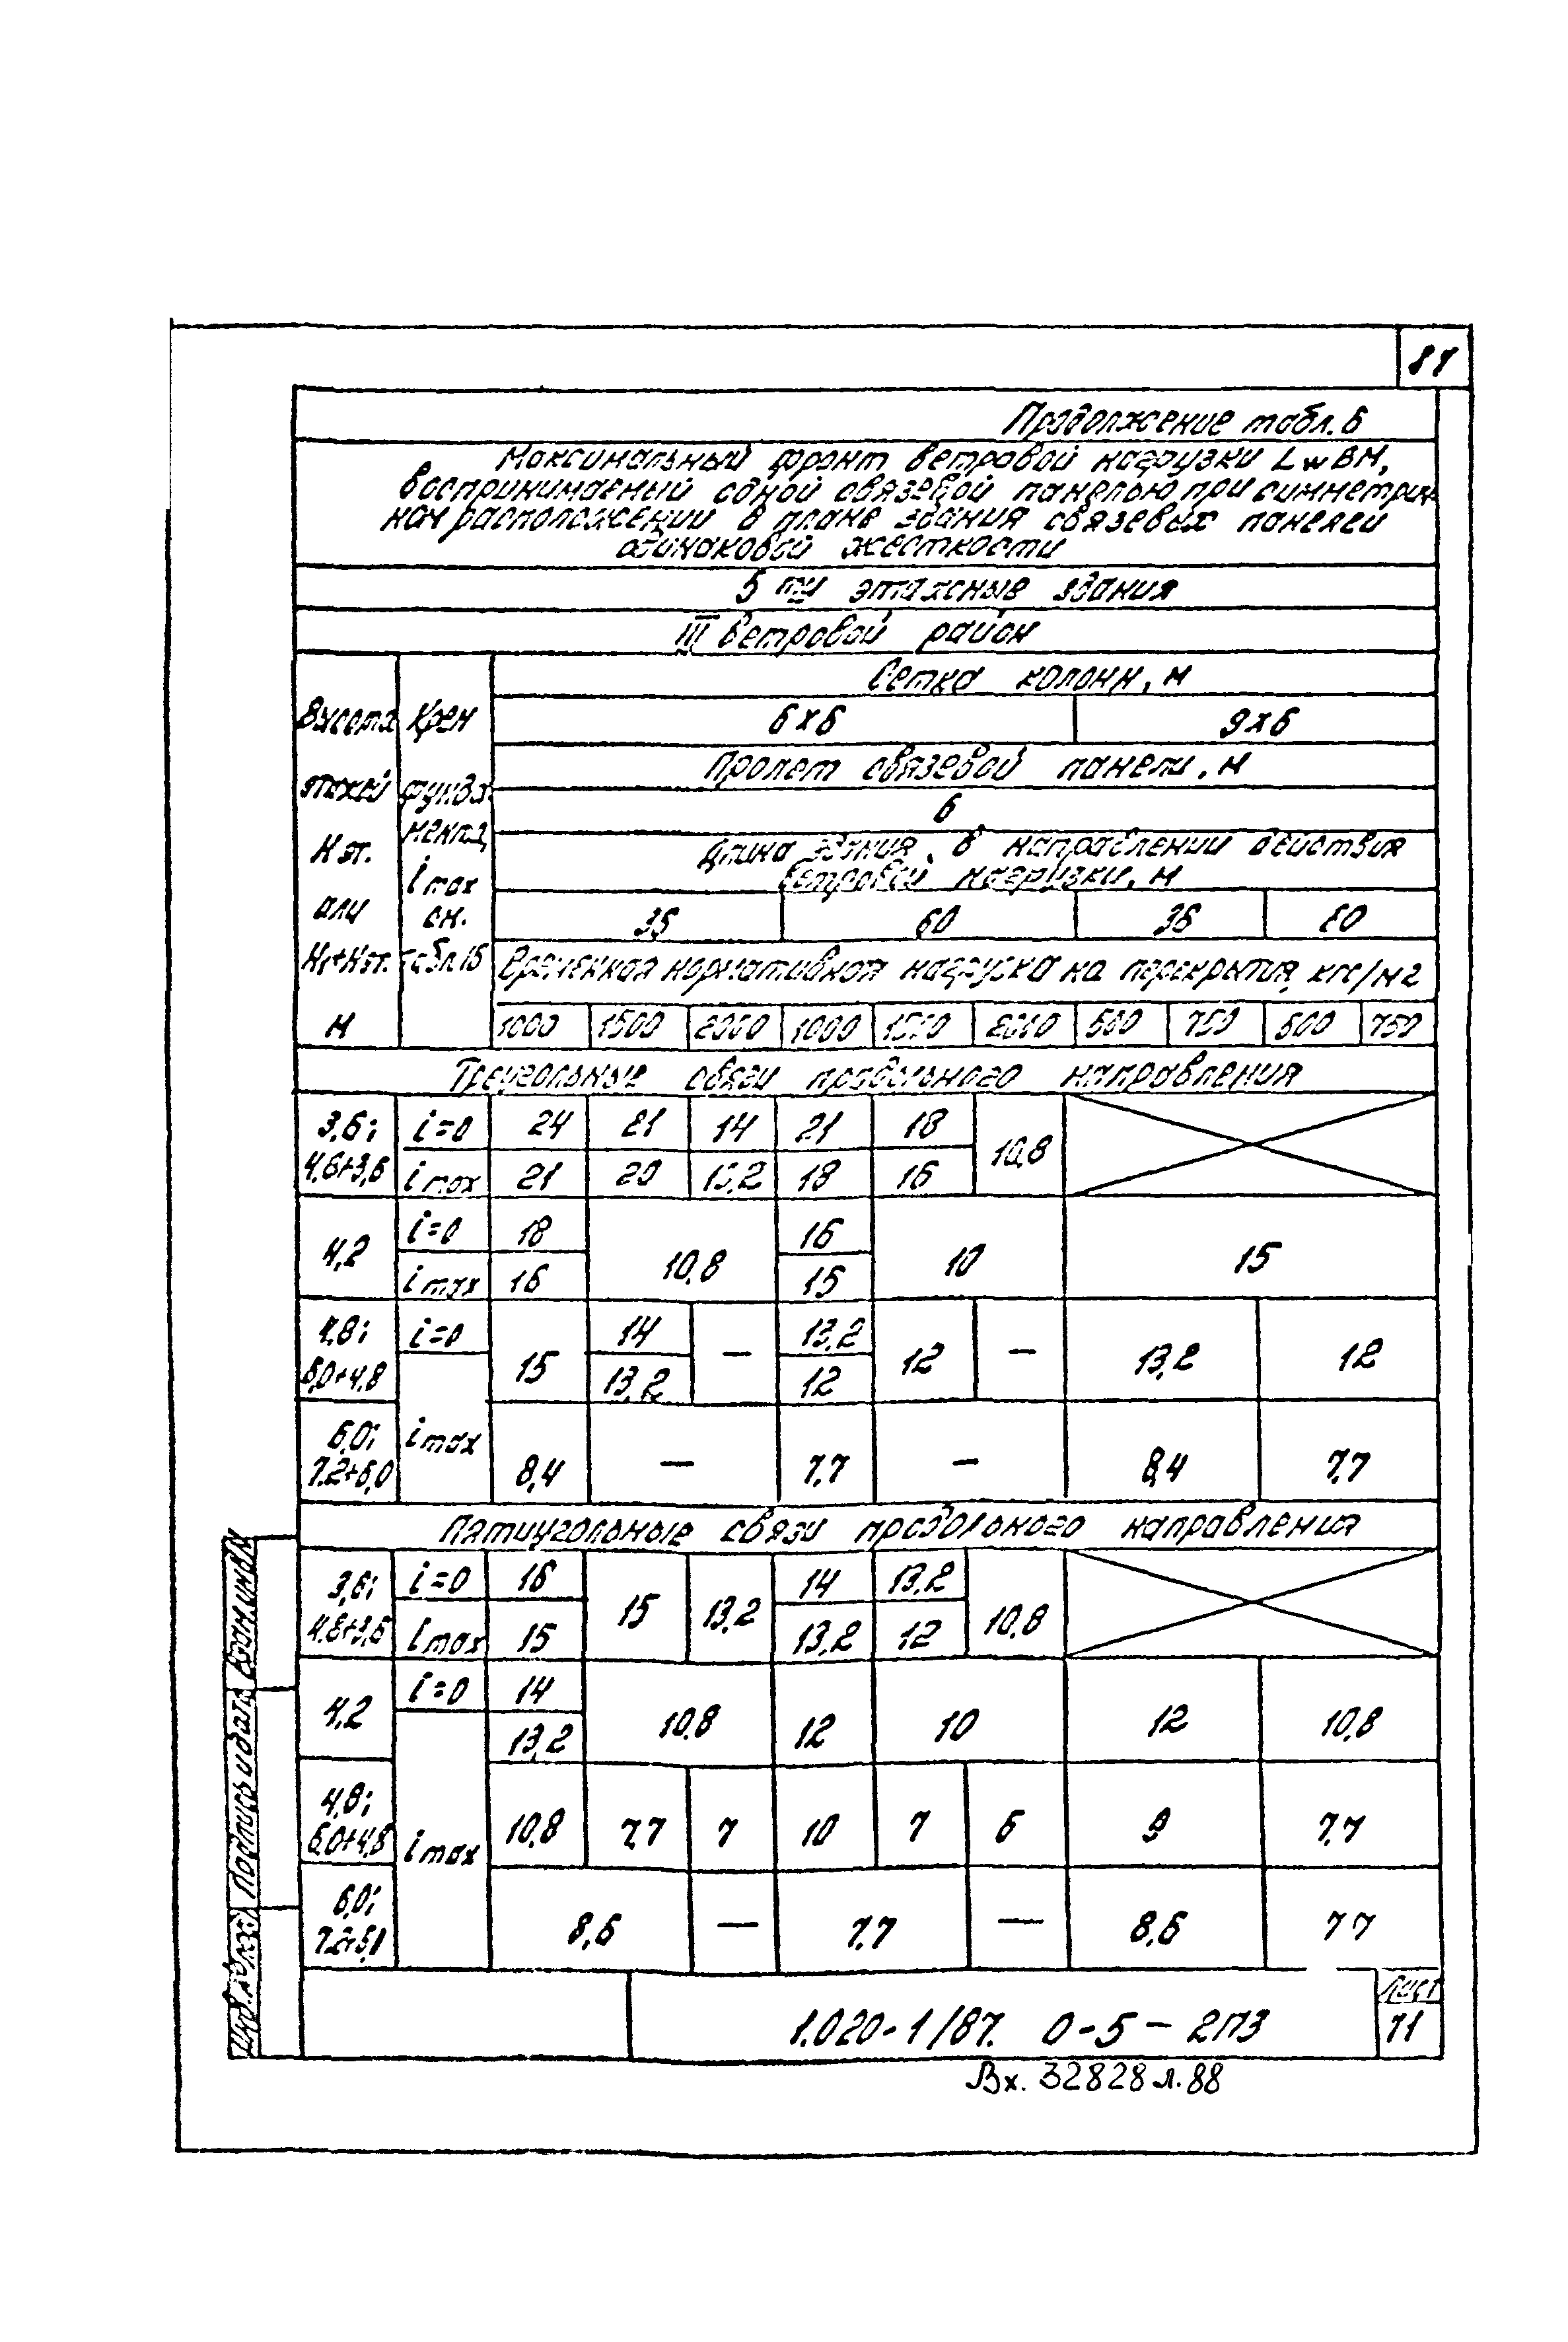 87
Продолжение табл. 6
Максимальный фронт ветровой нагрузки Lw в м,
воспринимаемый одной связевой панелью при симметрич-
ном расположении в плане здания связевых панелей
одинаковой жесткости
5ти этажные здания
III ветровой район
Высота этажей Нэт. или Н1+Нэт. м
Крен фундамента i max см. табл. 16
Сетка колонн, м
6x6 9x6
Пролет связевой панели, м
6
Длина здания, в направлении действия
ветровой нагрузки, м
36 60 36 60
Временная нормативная нагрузка на перекрытия, кгс/м2
1000 1500 2000 1000 1500 2000 500 750 500 750
Треугольные связи продольного направления
3,6; i=0 24 21 14 21 18 10,8
4,8+3,6 i max 21 20 13,2 18 16
4,2 i=0 18 10,8 16 10 15
i max 16 15
4,8; i=0 15 14 — 13,2 12 — 13,2 12
6,0+4,8 13,2 12
6,0; i max 8,4 — 7.7 — 8,4 7.7
7.2+6,0
Пятиугольные связи продольного направления
3,6; i=0 16 15 13,2 14 13,2 10,8
4,8+3,6 i max 15 13,2 12
4,2 i=0 14 10,8 12 10 12 10,8
13,2
4,8; 10,8 7,7 7 10 7 6 9 7.7
6,0+4,8 i max
6,0; 8,6 — 7.7 — 8,6 7 7
7.2+6,0
Взам.инв.№
Подпись и дата
Инв.№ подл.
1.020-1/87. 0-5-2ПЗ
Лист
71
Вх. 32828 л. 88